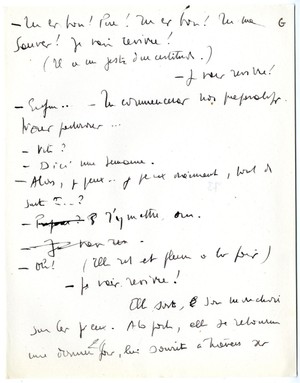 - Tu es bon! Père! Tu es bon! Tu me G
sauves! Je vais revivre!
(Il a un geste d'incertitude.)
- Je vais revivre!
- Enfin.. - Tu commenceras
- Vite?
- D'ici une semaine.
- Alors, je peux.. je peux vraiment, tout de
suite T...?
m'y mettre, oui.
- Je
- Oh! (Elle rit et pleure à la fois)
- Je vais revivre!
Elle sort, son mouchoir
sur les yeux. A la porte, elle se retourne
une dernière fois, lui sourit à travers ses